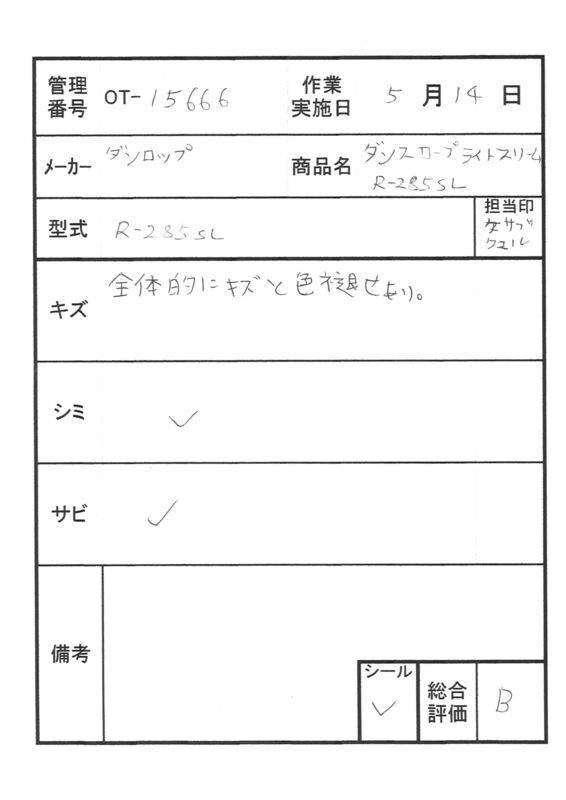 管理番号 OT-15666 作業実施日 5月14日
メーカー ダンロップ 商品名 ダンスロープライトスリーム
R-285SL
型式 R-285SL 担当印
キズ 全体的にキズと色褪せあり。
シミ ✓
サビ ✓
備考
シール ✓ 総合評価 B